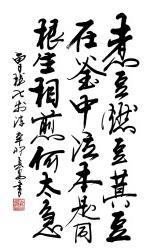 煮豆燃豆萁豆
在釜中泣本是同
根生相煎何太急
曹植七步诗辛卯書